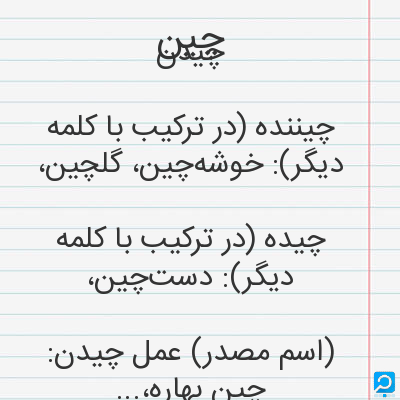 چین
چیدن
چیننده (در ترکیب با کلمه
دیگر): خوشه‌چین، گلچین،
چیده (در ترکیب با کلمه
دیگر): دست‌چین،
(اسم مصدر) عمل چیدن:
چین بهاره،...